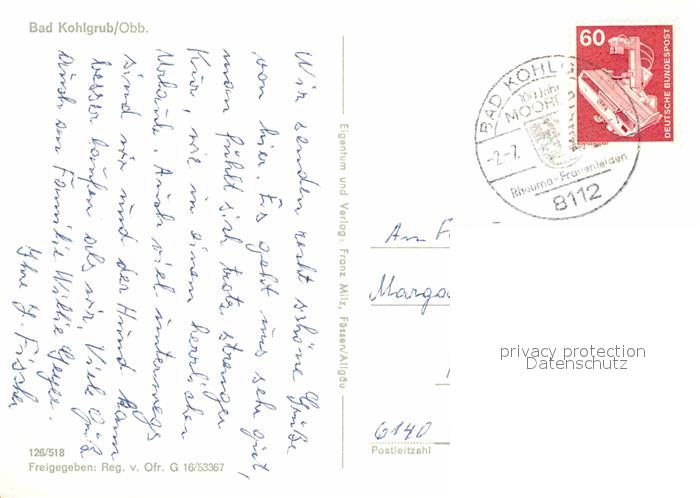 Bad Kohlgrub/Obb.
Wir senden recht schöne Grüße
von hier. Es geht uns sehr gut,
man fühlt sich trotz strenger
Kur, wie in einem herrlichen
Urlaub. Auch viel unterwegs
sind wir und der Hund kann
besser laufen als wir. Viele Grüße
auch an Familie Willi Geyer.
Ihre J. Fischer
126/518
Freigegeben: Reg. v. Ofr. G 16/53367
Eigentum und Verlag: Franz Milz, Füssen/Allgäu
60
DEUTSCHE BUNDESPOST
BAD KOHL
100 Jahr
MOOR
-2.-7.
Rheuma-Frauenleiden
8112
An F
Marga
6140
Postleitzahl
privacy protection
Datenschutz